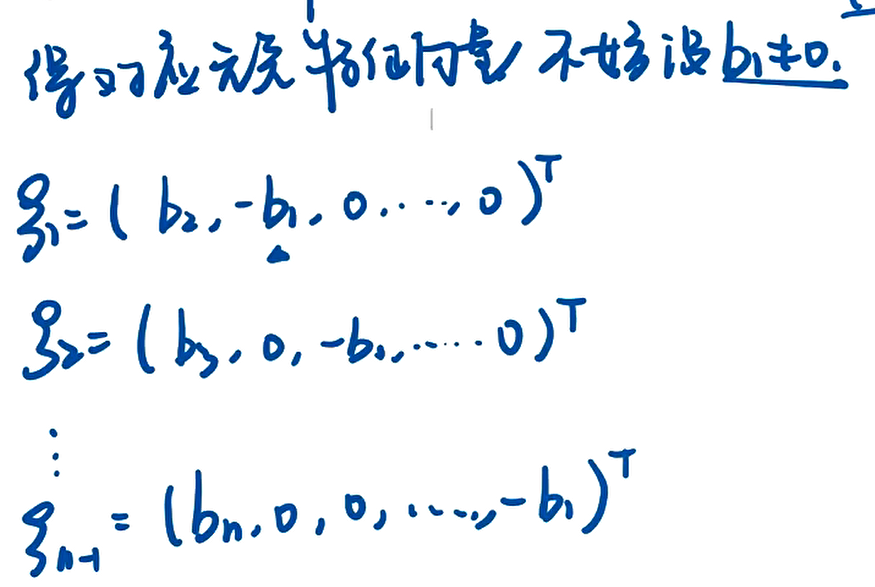 得对应无关特征向量 不妨设 b₁≠0.
ξ₁=( b₂, -b₁, 0, ..., 0 )ᵀ
ξ₂=( b₃, 0, -b₁, ..... 0)ᵀ
⋮
ξₙ₋₁ = (bₙ, 0, 0, ...., -b₁)ᵀ